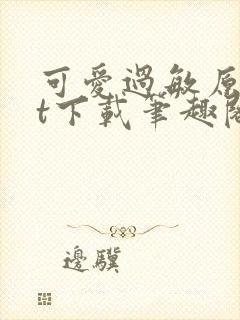 可愛過敏原
t下載筆趣閣
邊驥